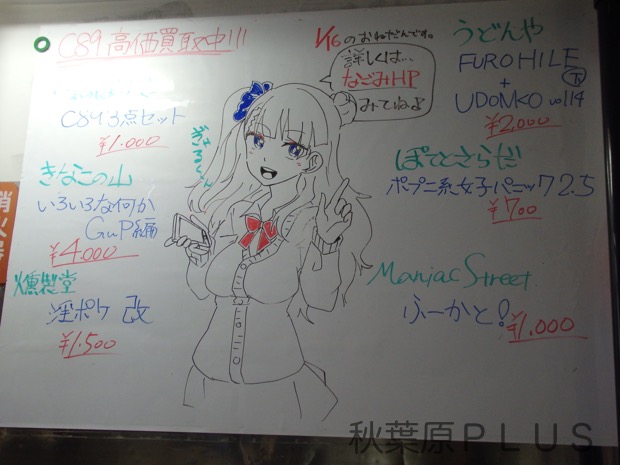 C89 高価買取中!!!
1/16 のおねだんです。
詳しくは…
なごみHP
みてねよ
C89 3点セット
¥1.000
きなこの山
いろいろな何か
GuP編
¥4.000
燻製堂
淫ポケ 改
¥1.500
うどんや
FUROHILE 下
+
UDONKO vol14
¥2,000
ぽてとさらだ
ポプニ系女子パニック 2.5
¥700
Maniac Street
ふーかと!
¥1,000
秋葉原PLUS